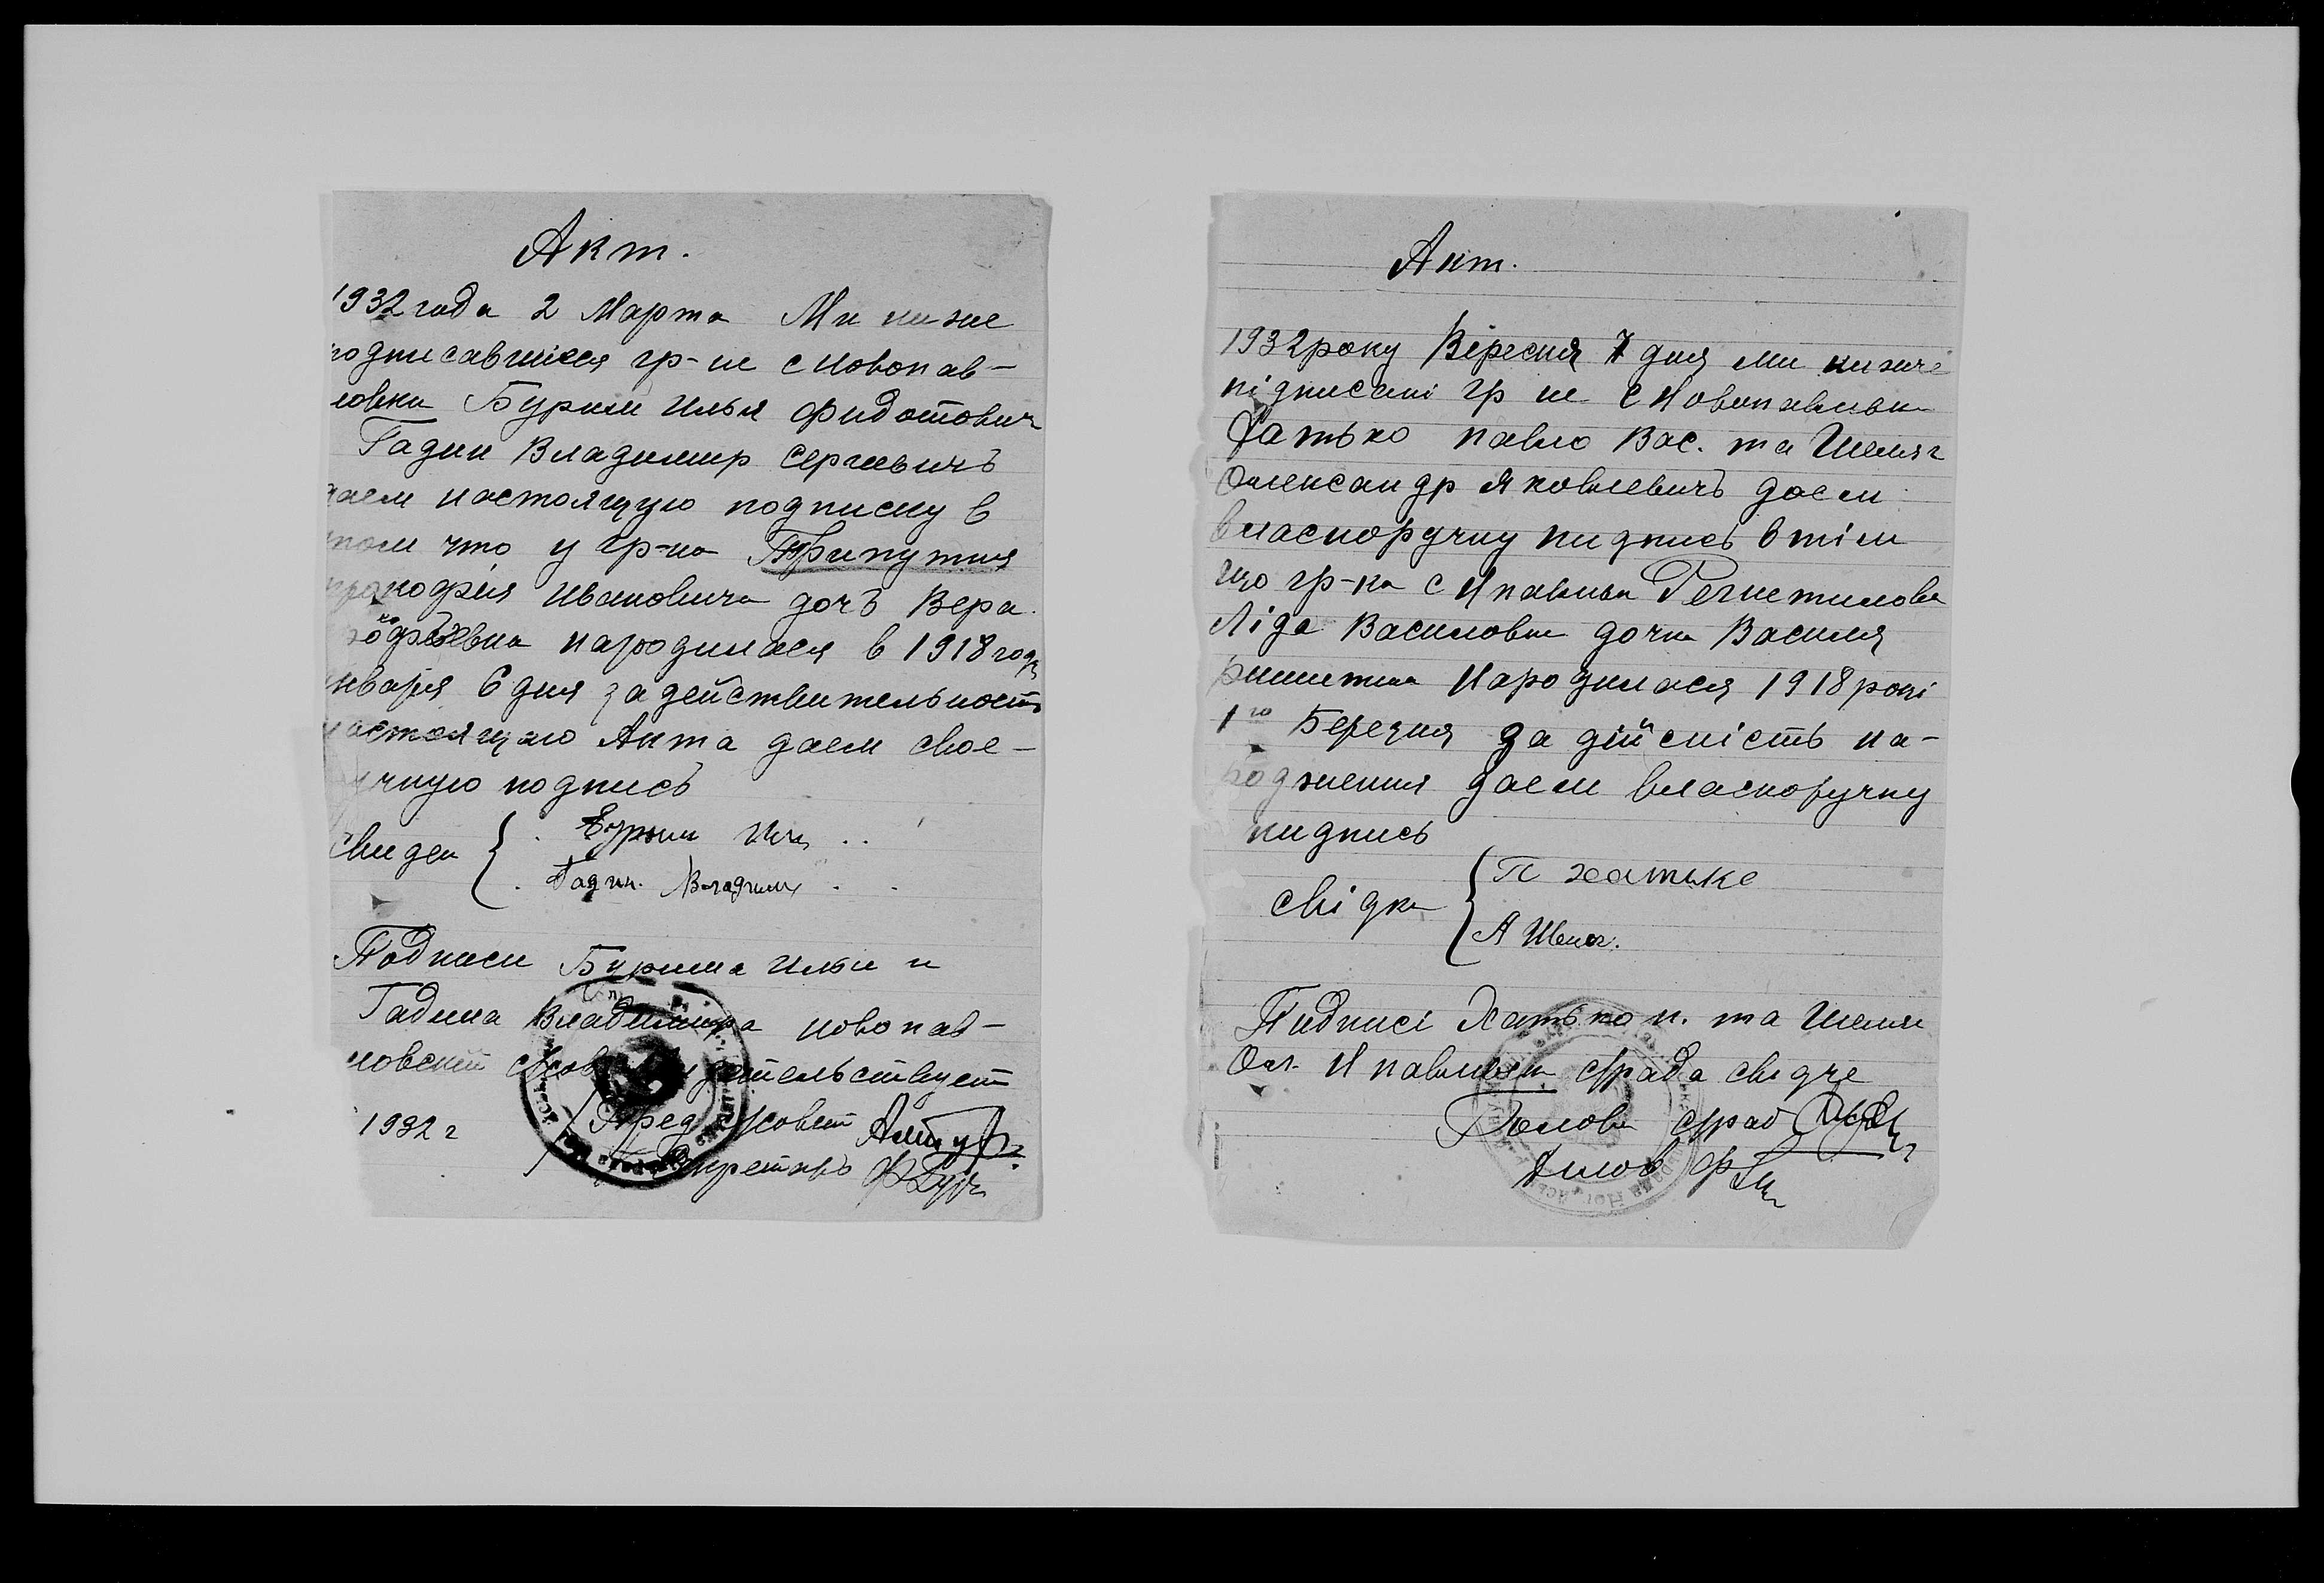 Акт.
1932 года 2 Марта Ми ниже
подписавшиеся гр-не с Новопав-
ловки Бурим Илья Фидотович
Гадин Владимир Сергеевичъ
даем настоящую подписку в
том что у гр-на Припутня
Прокофия Ивановича дочъ Вера
народилася в 1918 году
января 6 дня за действительность
настоящего Акта даем свое-
ручную подпись
свидеи
Гадин. Владимир
Подписи Бурима Ильи и
Гадина Владимира новопав-
ловский
1932 г Пред с/совет
Секретарь
Акт.
1932 року Вересня 7 дня ми нижче
підписані гр не с Новопавлвки
Хатько Павло Вас. та Шеляг
Олександр Яковлевичъ даем
власноручну пидпись в тім
що гр-ка с Нпавлвки Решетилова
Ліда Василовна дочка Василя
народилася 1918 році
1го Березня за дійсність на-
родження даем власноручну
пидпись
свідки П Хатько
А Шеляг.
Пидписі Хатько п. та Шеляг
Ол. Нпавлвська с/рада свідче
Голова с/рад